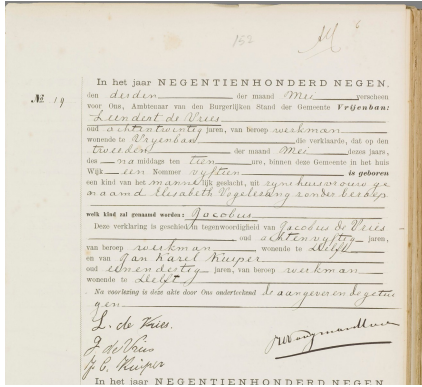 152
In het jaar NEGENTIENHONDERD NEGEN,
No. 19
den derden der maand Mei verscheen
voor Ons, Ambtenaar van den Burgerlijken Stand der Gemeente Vrijenban:
Leendert de Vries
oud achtentwintig jaren, van beroep werkman
wonende te Vrijenban die verklaarde, dat op den
tweeden der maand Mei dezes jaars,
des namiddags ten tien ure, binnen deze Gemeente in het huis
Wijk een Nommer vijftien is geboren
een kind van het mannelijk geslacht, uit zijne huisvrouw ge
naamd Elisabeth Vogelesang zonder beroep
welk kind zal genaamd worden: Jacobus
Deze verklaring is geschied in tegenwoordigheid van Jacobus de Vries
oud achtenvijftig jaren,
van beroep werkman wonende te Delft
en van Jan Karel Kuiper
oud eenendertig jaren, van beroep werkman
wonende te Delft
Na voorlezing is deze akte door Ons onderteekend de aangever en de getui
gen
L. de Vries.
J de Vries
J. C. Kuiper
In het jaar NEGENTIENHONDERD NEGEN